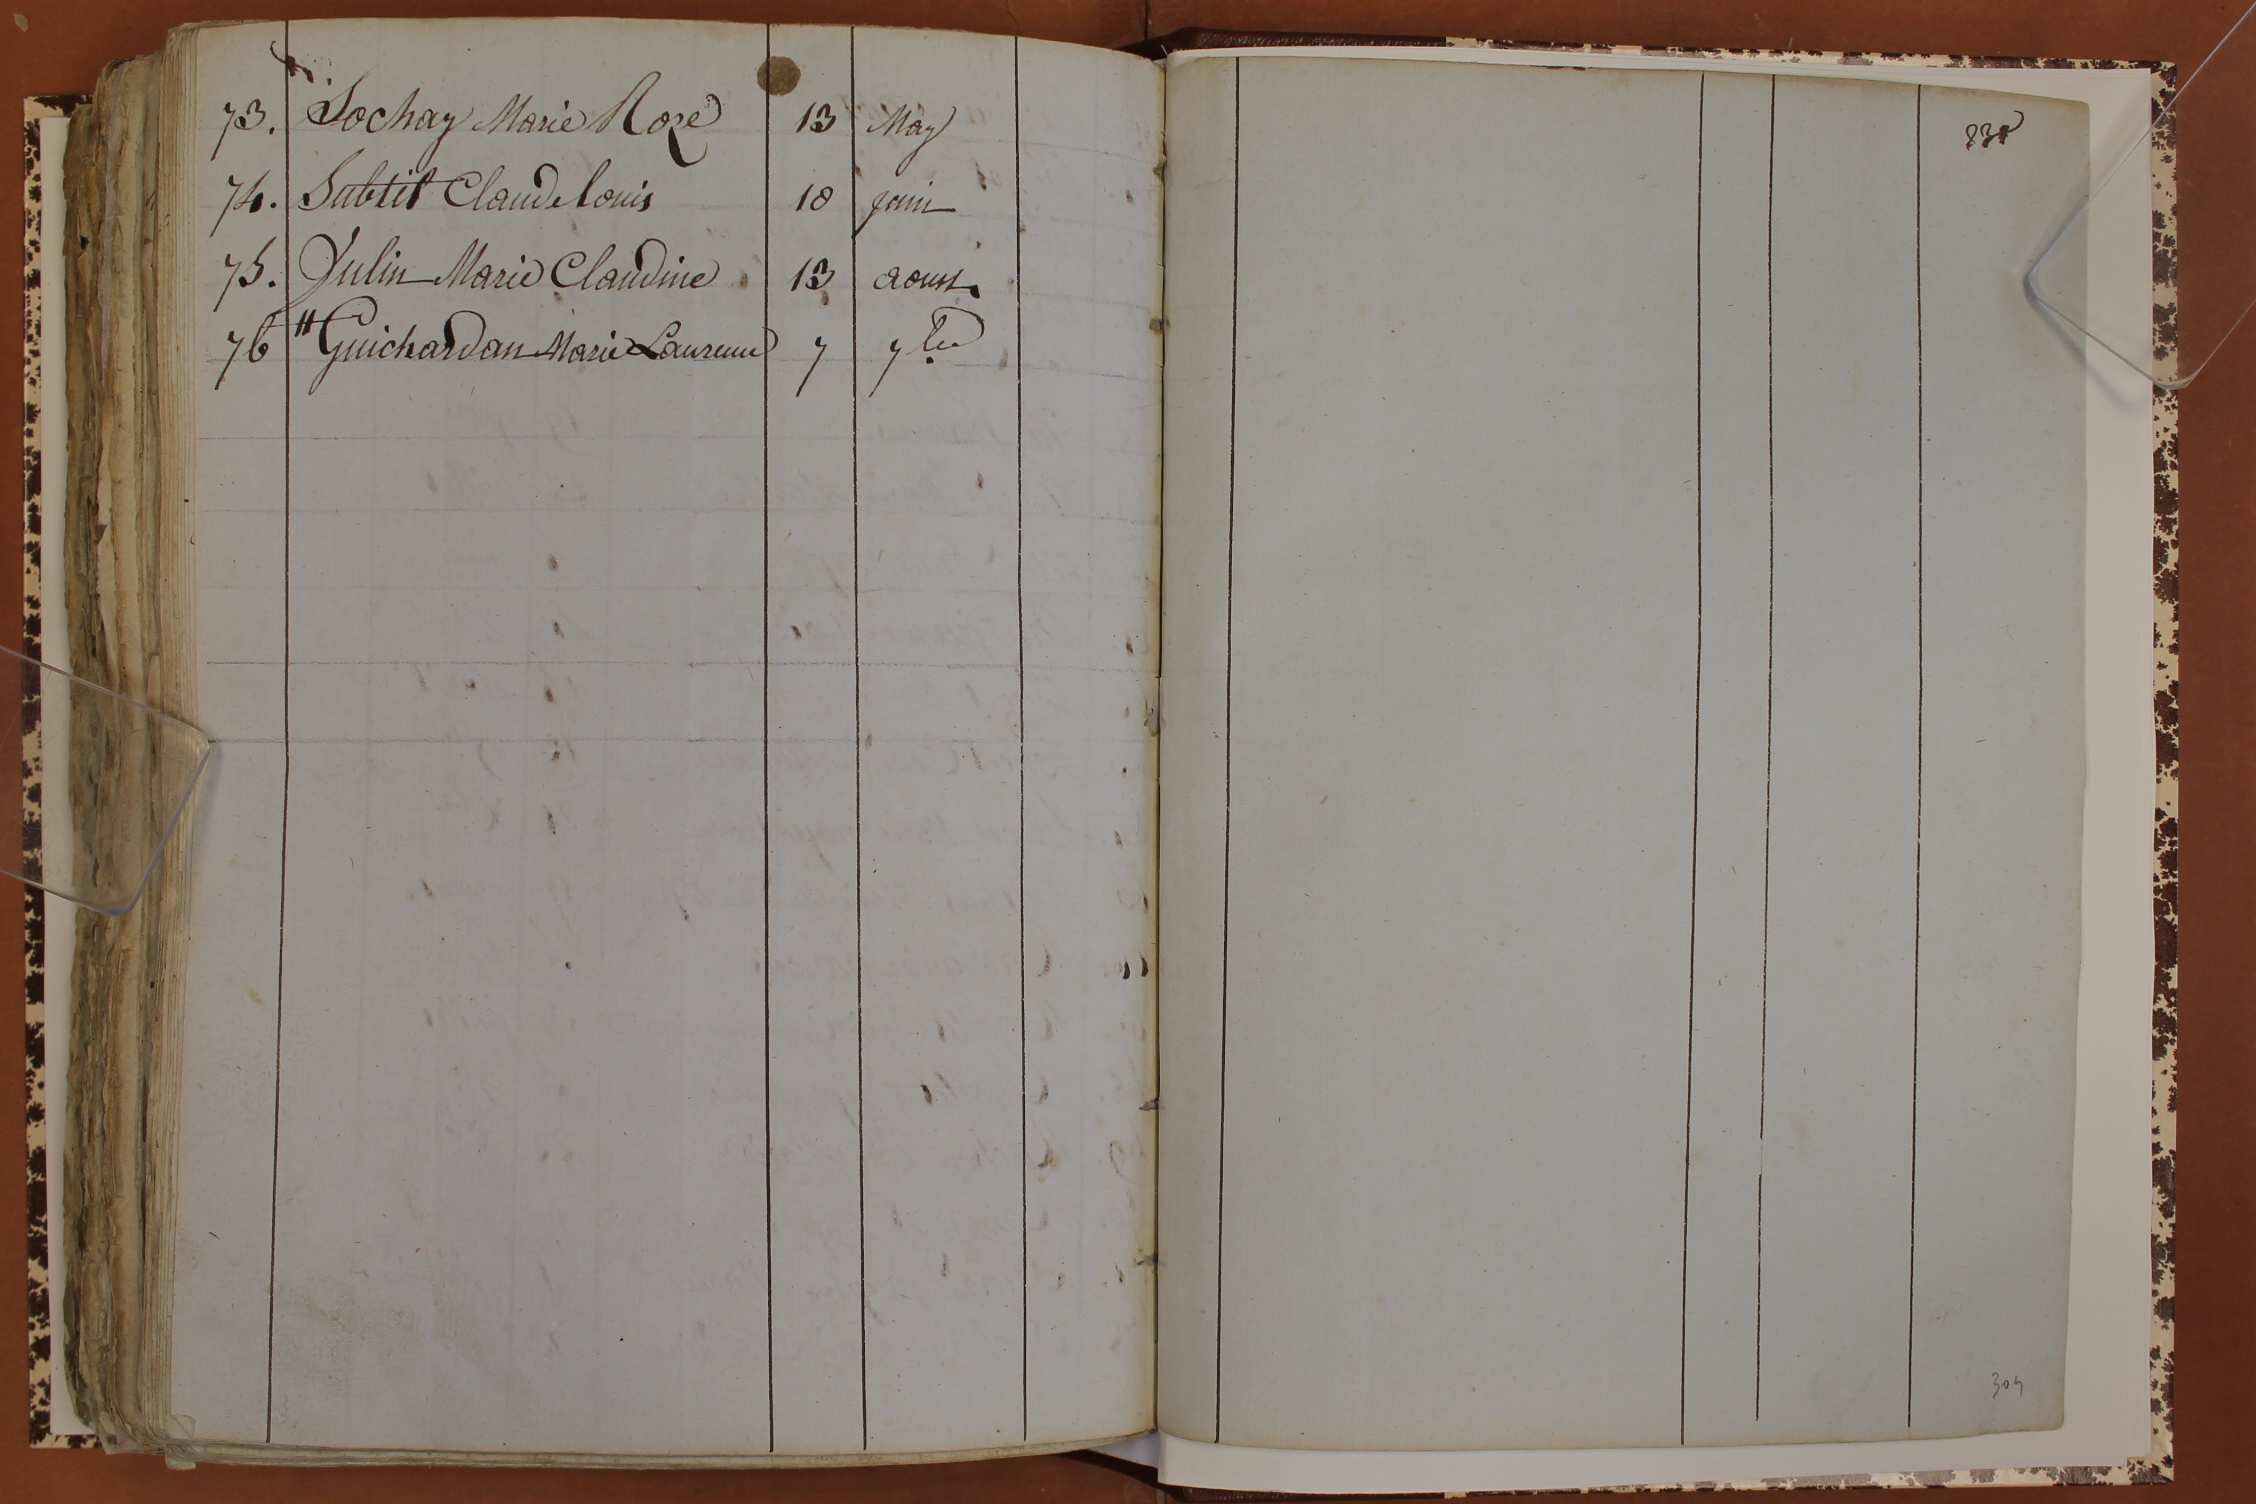 73. Sochay Marie Roze 13 May
74. Subtil Claude Louis 18 juin
75. Julin Marie Claudine 13 aoust
76 Guichardan Marie Laurence 7 7bre
304